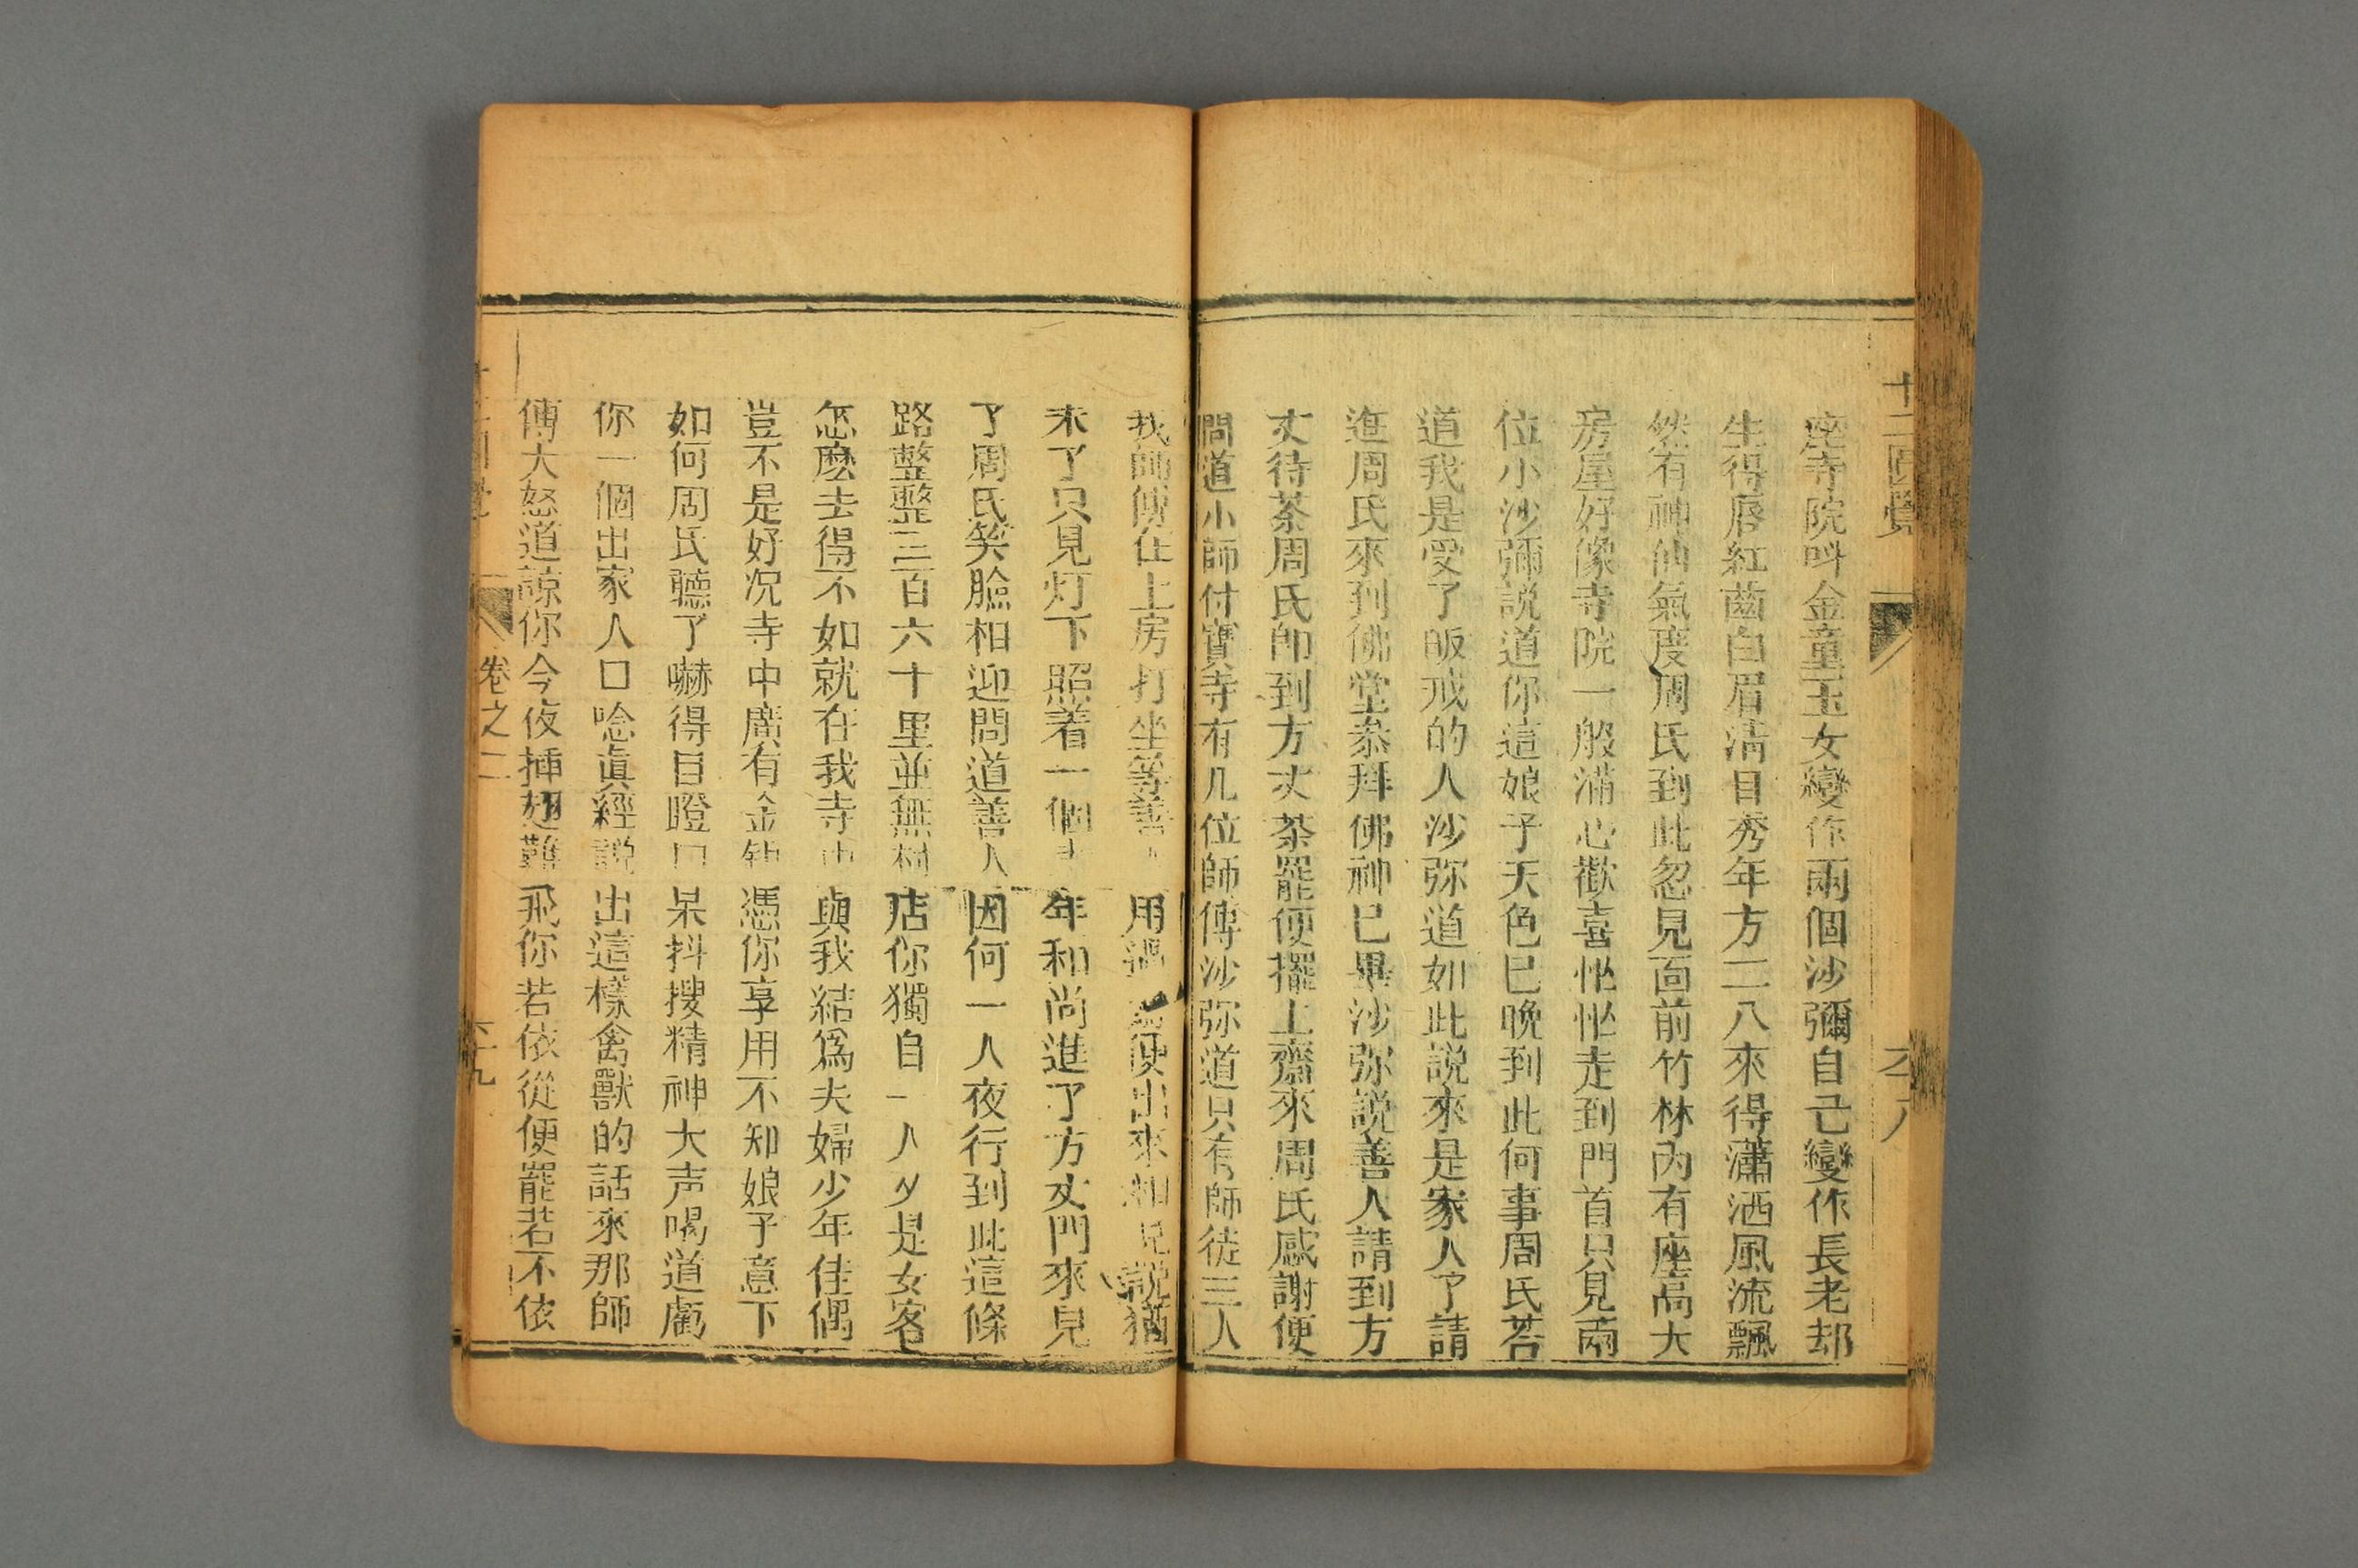 座寺院呌金童玉女變作兩個沙彌自己變作長老却
生得唇紅齒白眉清目秀年方二八來得瀟洒風流飄
然有神仙氣度周氏到此忽見面前竹林內有座高大
房屋好像寺院一般滿心歡喜怅怅走到門首只見兩
位小沙彌說道你這娘子天色已晚到此何事周氏荅
道我是受了皈戒的人沙弥道如此說來是家人了請
進周氏來到佛堂叅拜佛神已畢沙弥說善人請到方
丈待茶周氏即到方丈茶罷便擺上齋來周氏感謝便
問道小師付寶寺有几位師傅沙弥道只有師徒三人
我師傅在上房打坐等善用過便出來相見說猶
未了只見灯下照着一個年和尚進了方丈門來見
了周氏笑臉相迎問道善人因何一人夜行到此這條
路整整三百六十里並無店你獨自一人又是女客
怎麽去得不如就在我寺中與我結爲夫婦少年佳偶
豈不是好况寺中廣有金銀憑你享用不知娘子意下
如何周氏聽了嚇得目瞪口呆抖搜精神大声喝道虧
你一個出家人口唸真經說出這樣禽獸的話來那師
傅大怒道諒你今夜揷翅難飛你若依從便罷若不依
卷之二